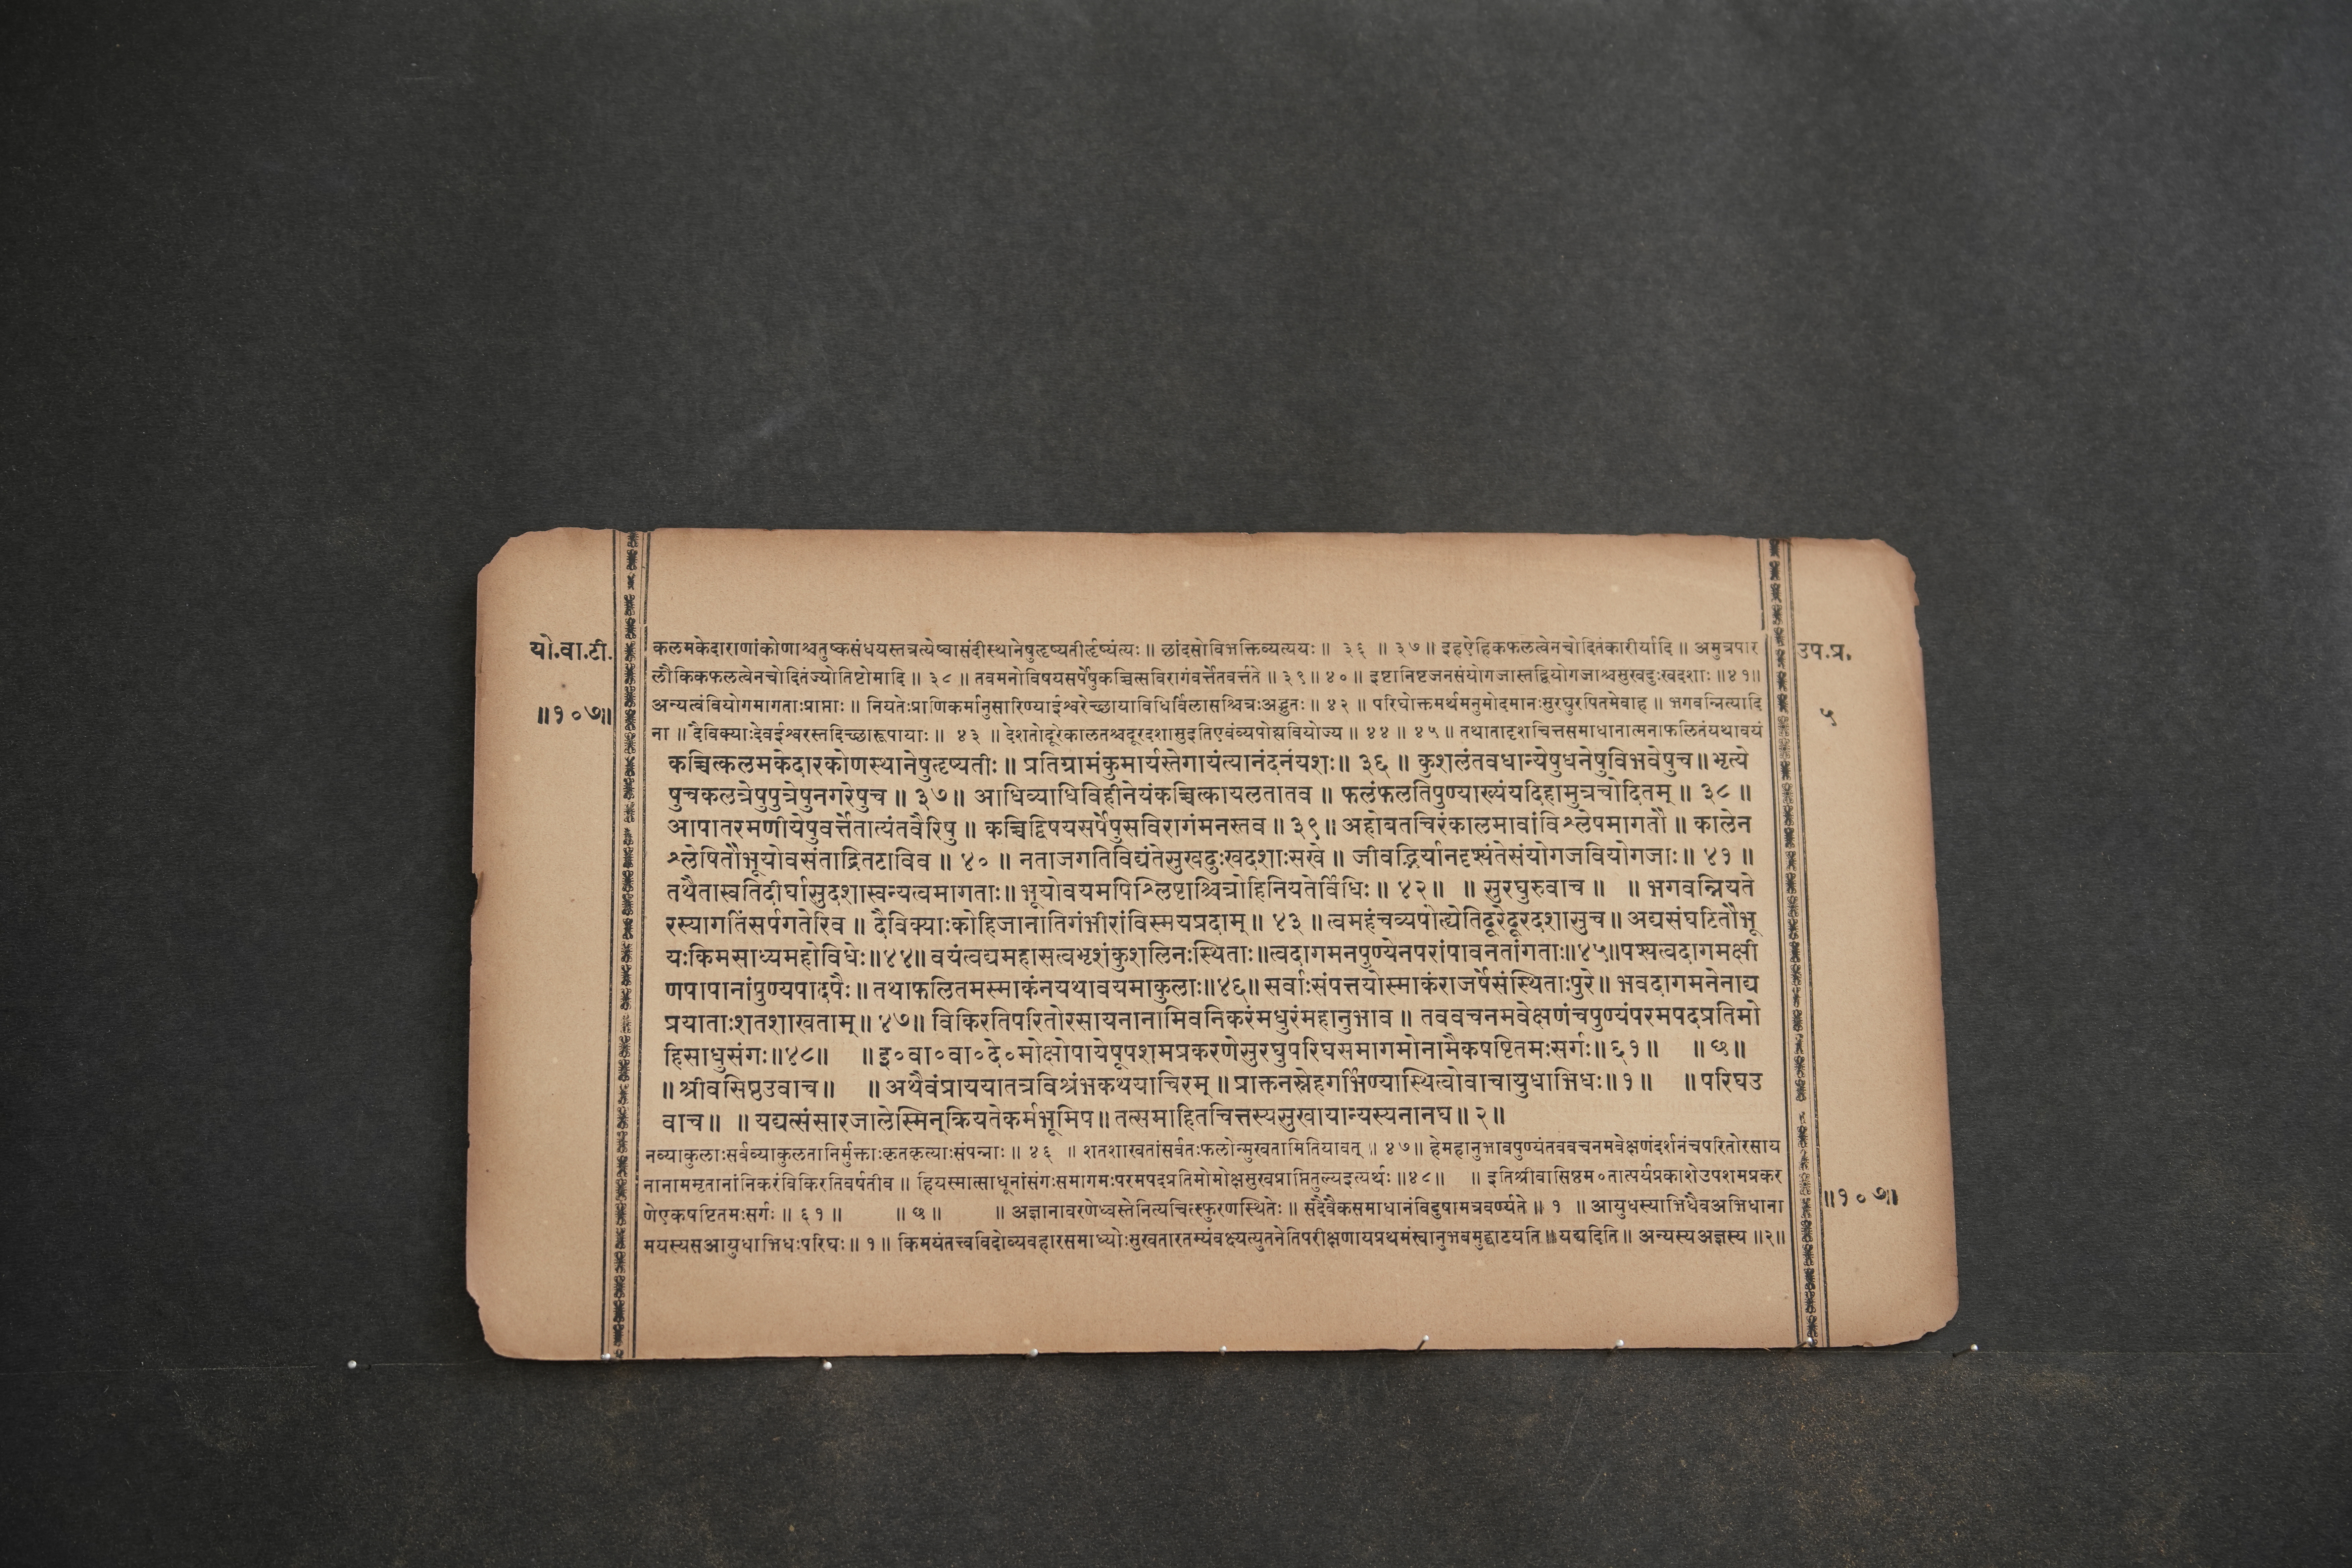 यो.वा.टी.
॥१०७॥
उप.प्र.
५
कलमकेदाराणांकोणाश्चतुष्कसंधयस्तत्रत्येष्वासंदीस्थानेषुतृष्यतीर्तृष्यंत्यः ॥ छांदसोविभक्तिव्यत्ययः ॥ ३६ ॥ ३७ ॥ इहऐहिकफलत्वेनचोदितंकारीर्यादि ॥ अमुत्रपार
लौकिकफलत्वेनचोदितंज्योतिष्टोमादि ॥ ३८ ॥ तवमनोविषयसर्पेषुकच्चित्सविरागंवर्त्तेतवर्त्तते ॥ ३९ ॥ ४० ॥ इष्टानिष्टजनसंयोगजास्तद्वियोगजाश्चसुखदुःखदशाः ॥४१॥
अन्यत्वंवियोगमागताःप्राप्ताः ॥ नियतेःप्राणिकर्मानुसारिण्याईश्वरेच्छायाविधिर्विलासश्चित्रःअद्भुतः ॥ ४२ ॥ परिघोक्तमर्थमनुमोदमानःसुरघुरपितमेवाह ॥ भगवन्नित्यादि
ना ॥ दैविक्याःदेवईश्वरस्तदिच्छारूपायाः ॥ ४३ ॥ देशतोदूरेकालतश्चदूरदशासुइतिएवंव्यपोह्यवियोज्य ॥ ४४ ॥ ४५ ॥ तथातादृशचित्तसमाधानात्मनाफलितंयथावयं
कच्चित्कलमकेदारकोणस्थानेषुतृष्यतीः ॥ प्रतिग्रामंकुमार्यस्तेगायंत्यानंदनंयशः ॥ ३६ ॥ कुशलंतवधान्येषुधनेषुविभवेषुच ॥ भृत्ये
षुचकलत्रेषुपुत्रेषुनगरेषुच ॥ ३७ ॥ आधिव्याधिविहीनेयंकच्चित्कायलतातव ॥ फलंफलतिपुण्याख्यंयदिहामुत्रचोदितम् ॥ ३८ ॥
आपातरमणीयेषुवर्त्तेतात्यंतवैरिषु ॥ कच्चिद्विषयसर्पेषुसविरागंमनस्तव ॥ ३९ ॥ अहोबतचिरंकालमावांविश्लेषमागतौ ॥ कालेन
श्लेषितौभूयोवसंताद्रितटाविव ॥ ४० ॥ नताजगतिविद्यंतेसुखदुःखदशाःसखे ॥ जीवद्भिर्यानदृश्यंतेसंयोगजवियोगजाः ॥ ४१ ॥
तथैतास्वतिदीर्घासुदशास्वन्यत्वमागताः ॥ भूयोवयमपिश्लिष्टाश्चित्रोहिनियतेर्विधिः ॥ ४२ ॥ ॥ सुरघुरुवाच ॥ ॥ भगवन्नियते
रस्यागतिंसर्पगतेरिव ॥ दैविक्याःकोहिजानातिगंभीरांविस्मयप्रदाम् ॥ ४३ ॥ त्वमहंचव्यपोह्येतिदूरेदूरदशासुच ॥ अद्यसंघटितौभू
यःकिमसाध्यमहोविधेः ॥४४॥ वयंत्वद्यमहासत्वभृशंकुशलिनःस्थिताः ॥त्वदागमनपुण्येनपरांपावनतांगताः ॥४५॥पश्यत्वदागमक्षी
णपापानांपुण्यपादपैः ॥ तथाफलितमस्माकंनयथावयमाकुलाः ॥४६॥ सर्वाःसंपत्तयोस्माकंराजर्षेसंस्थिताःपुरे ॥ भवदागमनेनाद्य
प्रयाताःशतशाखताम् ॥ ४७ ॥ विकिरतिपरितोरसायनानामिवनिकरंमधुरंमहानुभाव ॥ तववचनमवेक्षणंचपुण्यंपरमपदप्रतिमो
हिसाधुसंगः ॥४८॥ ॥ इ०वा०वा०दे०मोक्षोपायेषूपशमप्रकरणेसुरघुपरिघसमागमोनामैकषष्टितमःसर्गः ॥ ६१ ॥ ॥ छ ॥
॥ श्रीवसिष्ठउवाच ॥ ॥ अथैवंप्राययातत्रविश्रंभकथयाचिरम् ॥ प्राक्तनस्नेहगर्भिण्यास्थित्वोवाचायुधाभिधः ॥ १ ॥ ॥ परिघउ
वाच ॥ ॥ यद्यत्संसारजालेस्मिन्क्रियतेकर्मभूमिप ॥ तत्समाहितचित्तस्यसुखायान्यस्यनानघ ॥ २ ॥
नव्याकुलाःसर्वव्याकुलतानिर्मुक्ताःकृतकृत्याःसंपन्नाः ॥ ४६ ॥ शतशाखतांसर्वतःफलोन्मुखतामितियावत् ॥ ४७ ॥ हेमहानुभावपुण्यंतववचनमवेक्षणंदर्शनंचपरितोरसाय
नानाममृतानांनिकरंविकिरतिवर्षतीव ॥ हियस्मात्साधूनांसंगःसमागमःपरमपदप्रतिमोमोक्षसुखप्राप्तितुल्यइत्यर्थः ॥४८॥ ॥ इतिश्रीवासिष्ठम०तात्पर्यप्रकाशेउपशमप्रकर
णेएकषष्टितमःसर्गः ॥ ६१ ॥ ॥ छ ॥ ॥ अज्ञानावरणेध्वस्तेनित्यचित्स्फुरणस्थितेः ॥ सदैवैकसमाधानंविदुषामत्रवर्ण्यते ॥ १ ॥ आयुधस्याभिधैवअभिधाना
मयस्यसआयुधाभिधःपरिघः ॥ १ ॥ किमयंतत्त्वविदोव्यवहारसमाध्योःसुखतारतम्यंवक्ष्यत्युतनेतिपरीक्षणायप्रथमंस्वानुभवमुद्घाटयति ॥ यद्यदिति ॥ अन्यस्यअज्ञस्य ॥२॥
॥१०७॥